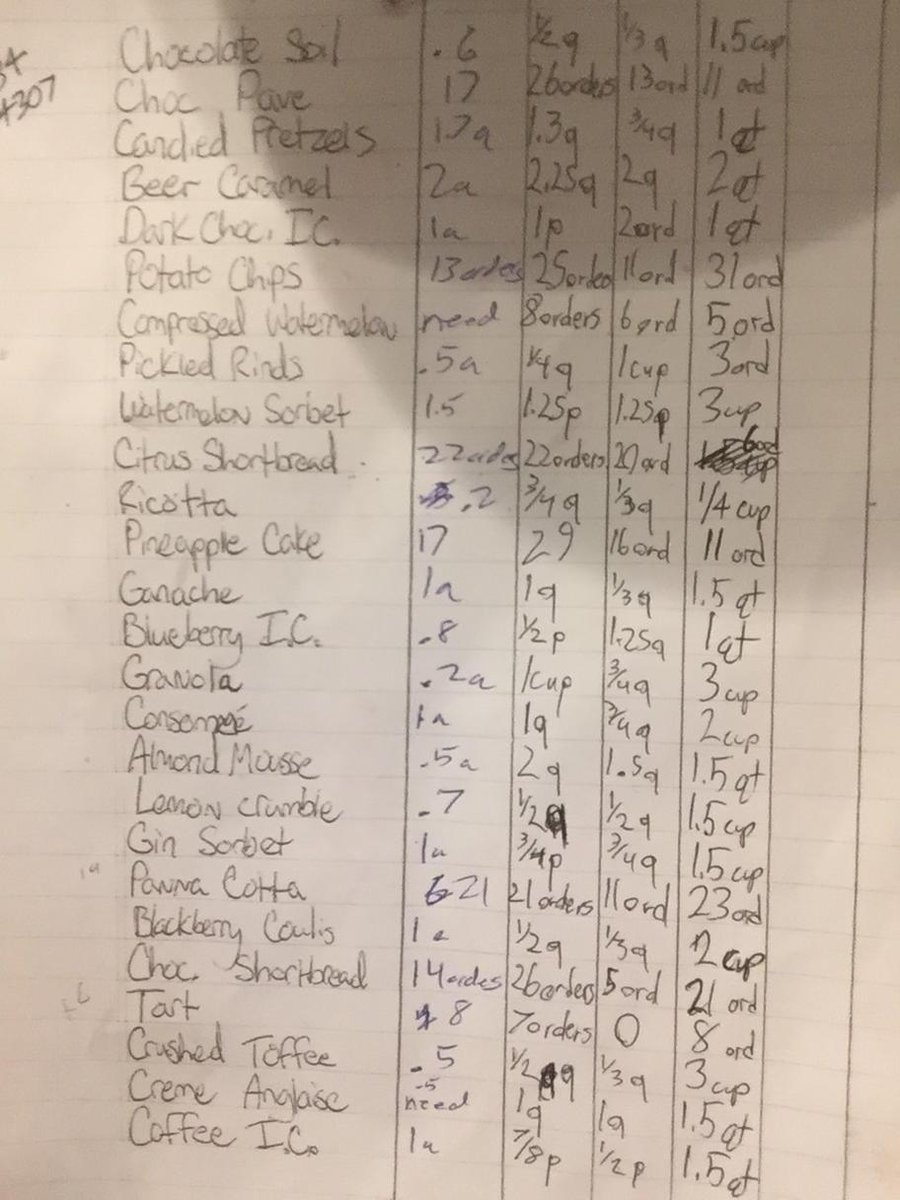 Chocolate Soil .6 1/2q 1/3q 1.5cup
Choc Pave 17 26orders 13ord 11 ord
Candied Pretzels 17a 1.3q 3/4q 1qt
Beer Caramel 2a 2.25q 2q 2qt
Dark Choc. I.C. 1a 1p 2ord 1qt
Potato Chips 13orders 25orders 11ord 31ord
Compressed Watermelon need 8orders 6ord 5ord
Pickled Rinds .5a 1/4q 1cup 3ord
Watermelon Sorbet 1.5 1.25p 1.25q 3cup
Citrus Shortbread 22orders 22orders 20ord 6ord
Ricotta .2 3/4q 1/3q 1/4 cup
Pineapple Cake 17 29 16ord 11ord
Ganache 1a 1q 1/3q 1.5qt
Blueberry I.C. .8 1/2p 1.25q 1qt
Granola .2a 1cup 3/4q 3cup
1a 1q 3/4q 2cup
Almond Mousse .5a 2q 1.5q 1.5qt
Lemon crumble .7 1/2q 1/2q 1.5cup
Gin Sorbet 1a 3/4p 3/4q 1.5cup
Panna Cotta 21 21orders 11ord 23ord
Blackberry Coulis 1a 1/2q 1/3q 2cup
Choc. Shortbread 14orders 26orders 5ord 21 ord
Tart 8 7orders 0 8 ord
Crushed Toffee .5 1/2q 1/3q 3cup
Creme Anglaise .5 need 1q 1q 1.5qt
Coffee I.C. 1a 7/8p 1/2p 1.5qt